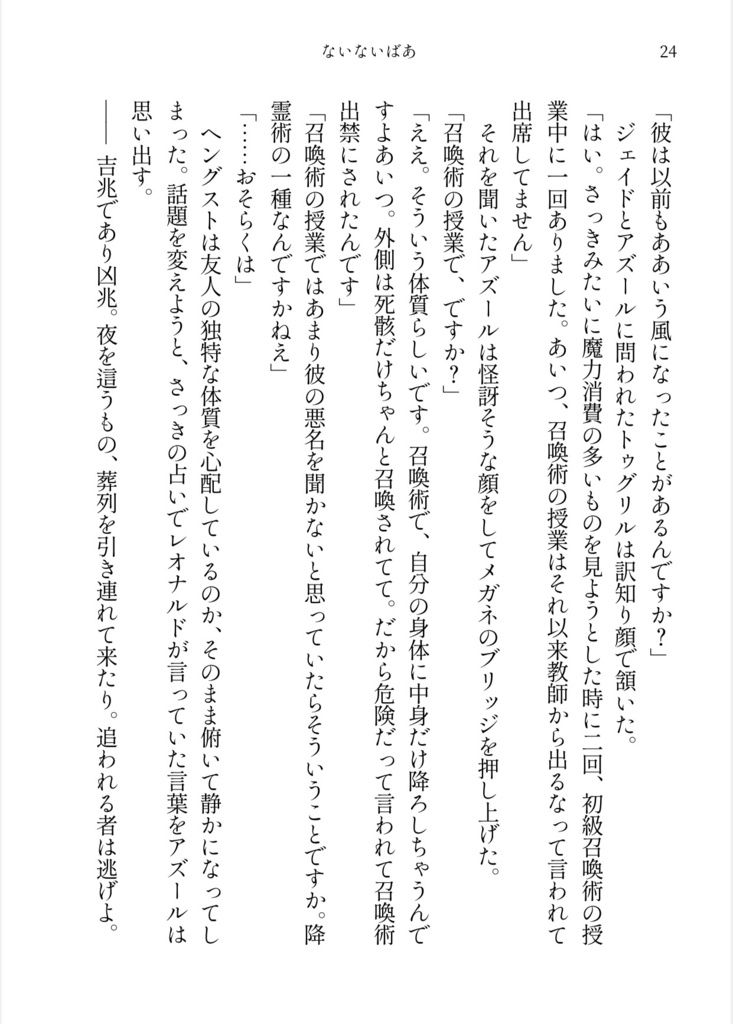 ないないばあ
24
「彼は以前もああいう風になったことがあるんですか？」
ジェイドとアズールに問われたトゥグリルは訳知り顔で頷いた。
「はい。さっきみたいに魔力消費の多いものを見ようとした時に二回、初級召喚術の授
業中に一回ありました。あいつ、召喚術の授業はそれ以来教師から出るなって言われて
出席してません」
それを聞いたアズールは怪訝そうな顔をしてメガネのブリッジを押し上げた。
「召喚術の授業で、ですか？」
「ええ。そういう体質らしいです。召喚術で、自分の身体に中身だけ降ろしちゃうんで
すよあいつ。外側は死骸だけちゃんと召喚されてて。だから危険だって言われて召喚術
出禁にされたんです」
「召喚術の授業ではあまり彼の悪名を聞かないと思っていたらそういうことですか。降
霊術の一種なんですかねえ」
「……おそらくは」
ヘングストは友人の独特な体質を心配しているのか、そのまま俯いて静かになってし
まった。話題を変えようと、さっきの占いでレオナルドが言っていた言葉をアズールは
思い出す。
―― 吉兆であり凶兆。夜を這うもの、葬列を引き連れて来たり。追われる者は逃げよ。